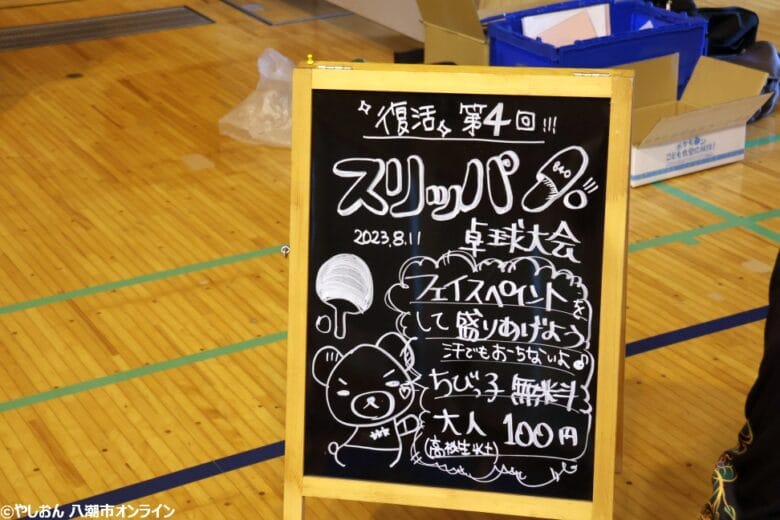 復活 第4回!!!
スリッパ
840
2023.8.11
卓球大会
フェイスペイントを
して盛りあげよう
汗でもおちないよ♪
ちびっ子 無料
大人 100円
(高校生以上)
©やしおん 八潮市オンライン